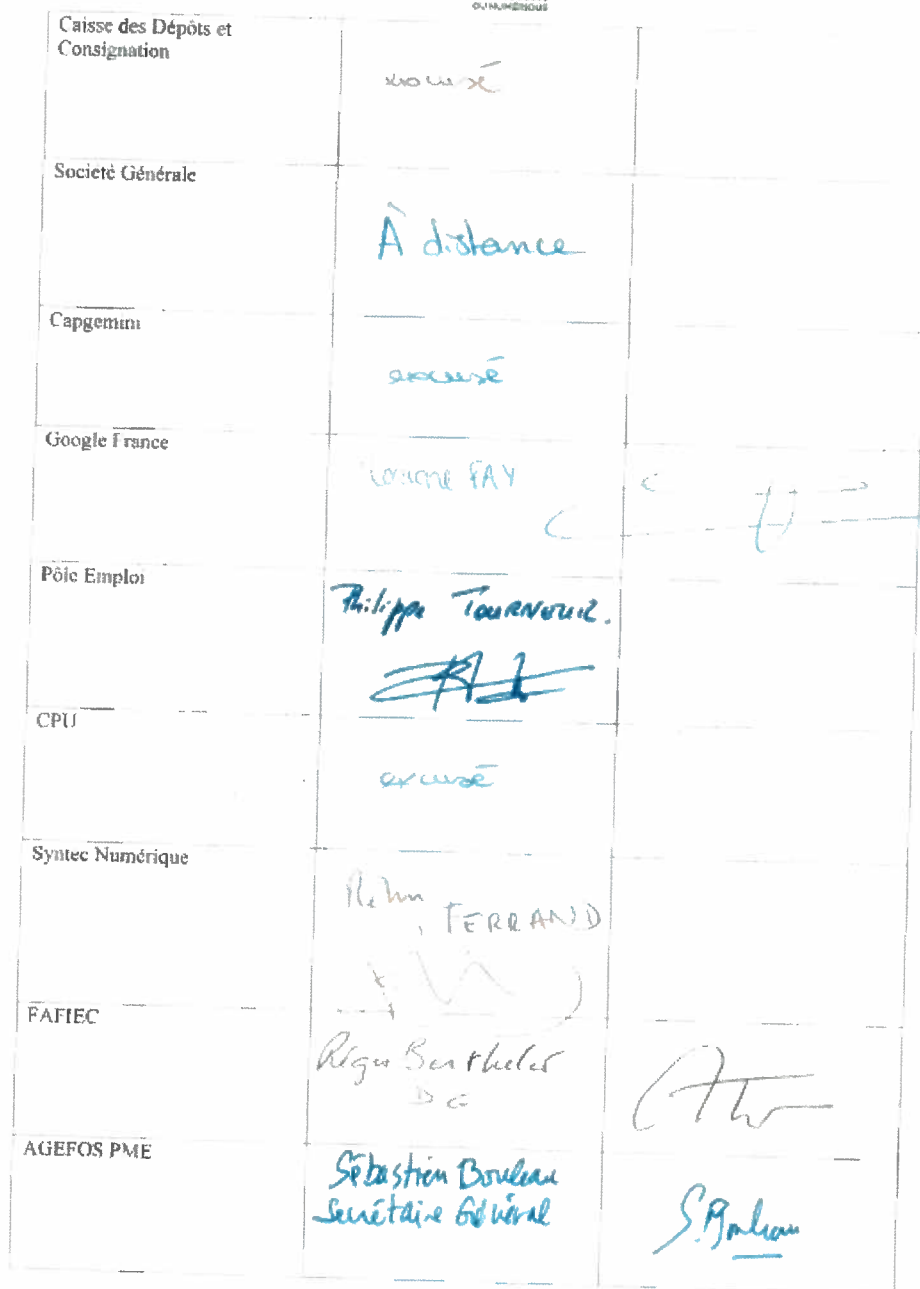 DU NUMÉRIQUE
Caisse des Dépôts et
Consignation
excusé
Societé Générale
À distance
Capgemini
excusé
Google France
FAY
Pôle Emploi
Philippe TOURNOUR.
CPU
excusé
Syntec Numérique
FERRAND
FAFIEC
Régis Berthelot
DG
AGEFOS PME
Sébastien Bouleau
Secrétaire Général
S. Bouleau